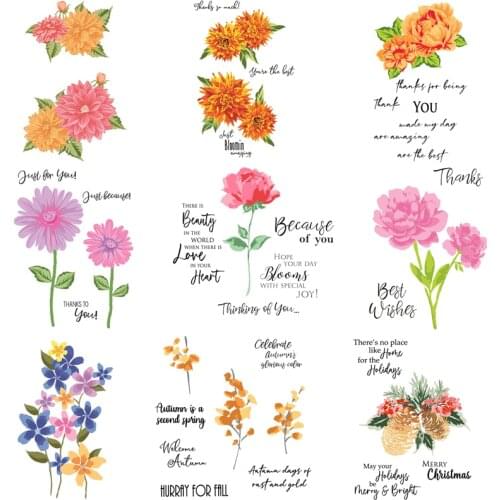 Thanks so much!
You're the best
Just
Bloomin
amazing
thanks for being
Thank YOU
made my day
are amazing
are the best
Thanks
Just for You!
Just because!
THANKS TO
You!
THERE IS
Beauty
IN THE
WORLD
WHEN THERE IS
Love
IN YOUR
Heart
Because
of you
HOPE
YOUR DAY
Blooms
WITH SPECIAL
JOY!
Thinking of You...
Best
Wishes
Celebrate
Autumn's
glorious color
Autumn is a
second spring
Welcome
Autumn
HURRAY FOR FALL
Autumn days of
rust and gold
There's no place
like Home
for the
Holidays
May your
Holidays
be
Merry & Bright
MERRY
Christmas